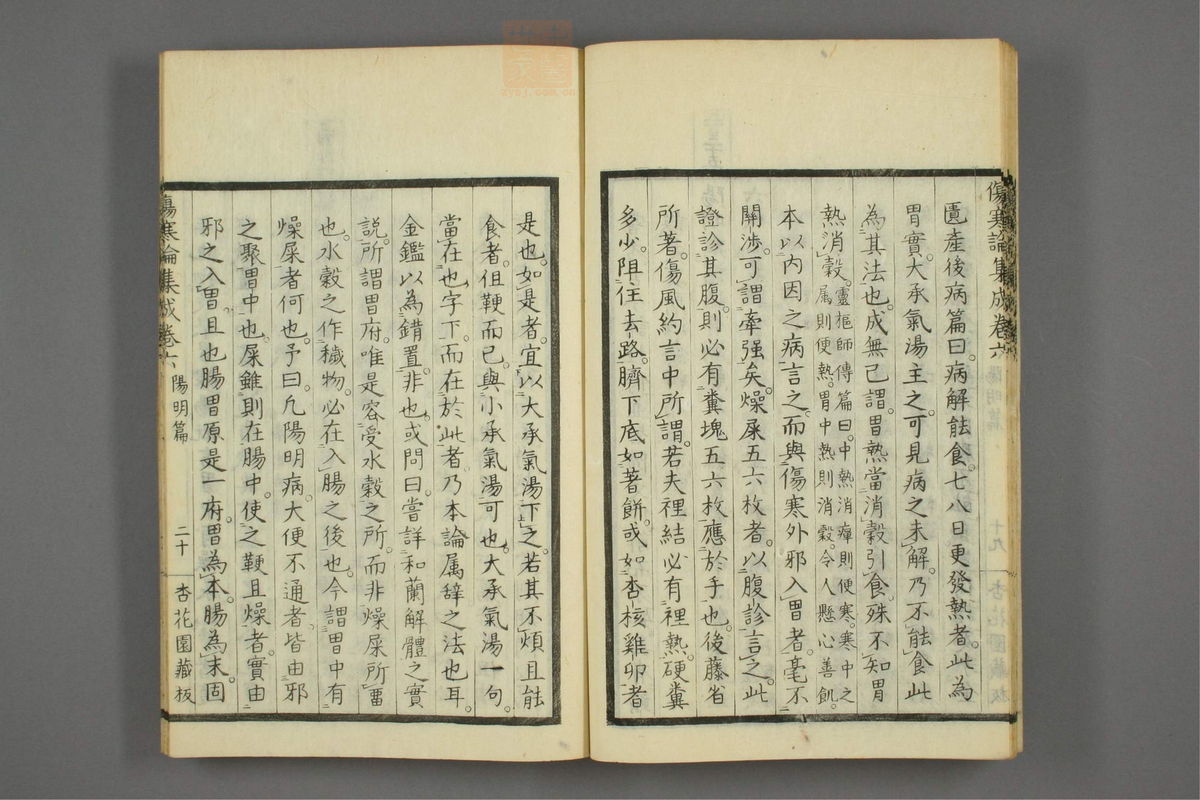 傷寒論集成卷六
匱產後病篇曰。病解能食。七八日更發熱者。此為
胃實。大承氣湯主之。可見病之未解。乃不能食。此
為其法也。成無己謂。胃熱當消穀引食。殊不知胃
熱消穀。靈樞師傳篇曰。中熱消癉則便寒。寒中之
属則便熱。胃中熱則消穀。令人懸心善飢。
本以內因之病言之。而與傷寒外邪入胃者。毫不
關渉。可謂牽强矣。燥屎五六枚者。以腹診言之。此
證診其腹。則必有糞塊五六枚應於手也。後藤省
所著。傷風約言中所謂。若夫裡結必有裡熱。硬糞
多少。阻住去路。臍下底如著餅。或如杏核雞卵者
是也。如是者。宜以大承氣湯下之。若其不煩且能
食者。但鞕而已。與小承氣湯可也。大承氣湯一句。
當在也字下。而在於此者。乃本論属辞之法也耳。
金鑑以為錯置。非也。或問曰。嘗詳和蘭解體之實
説。所謂胃府。唯是容受水穀之所。而非燥屎所畱
也。水穀之作穢物。必在入腸之後也。今謂胃中有
燥屎者何也。予曰。凡陽明病。大便不通者。皆由邪
之聚胃中也。屎雖則在腸中。使之鞕且燥者。實由
邪之入胃。且也腸胃原是一府。胃為本。腸為末。固
傷寒論集成卷六
陽明篇
二十
杏花園藏板